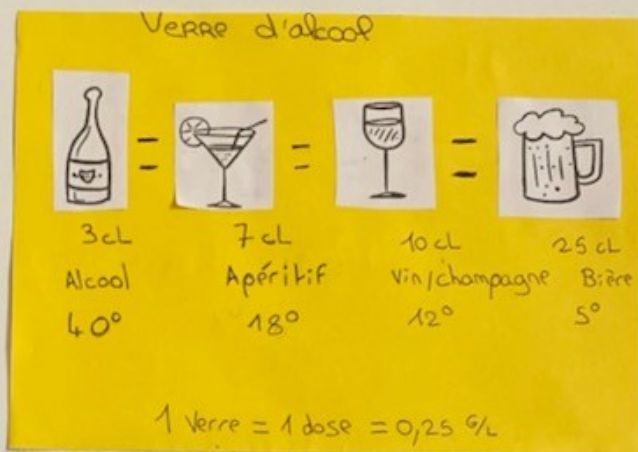 Verre d'alcool
= = =
3cL 7cL 10cL 25cL
Alcool Apéritif Vin/champagne Bière
40° 18° 12° 5°
1 Verre = 1 dose = 0,25 G/L